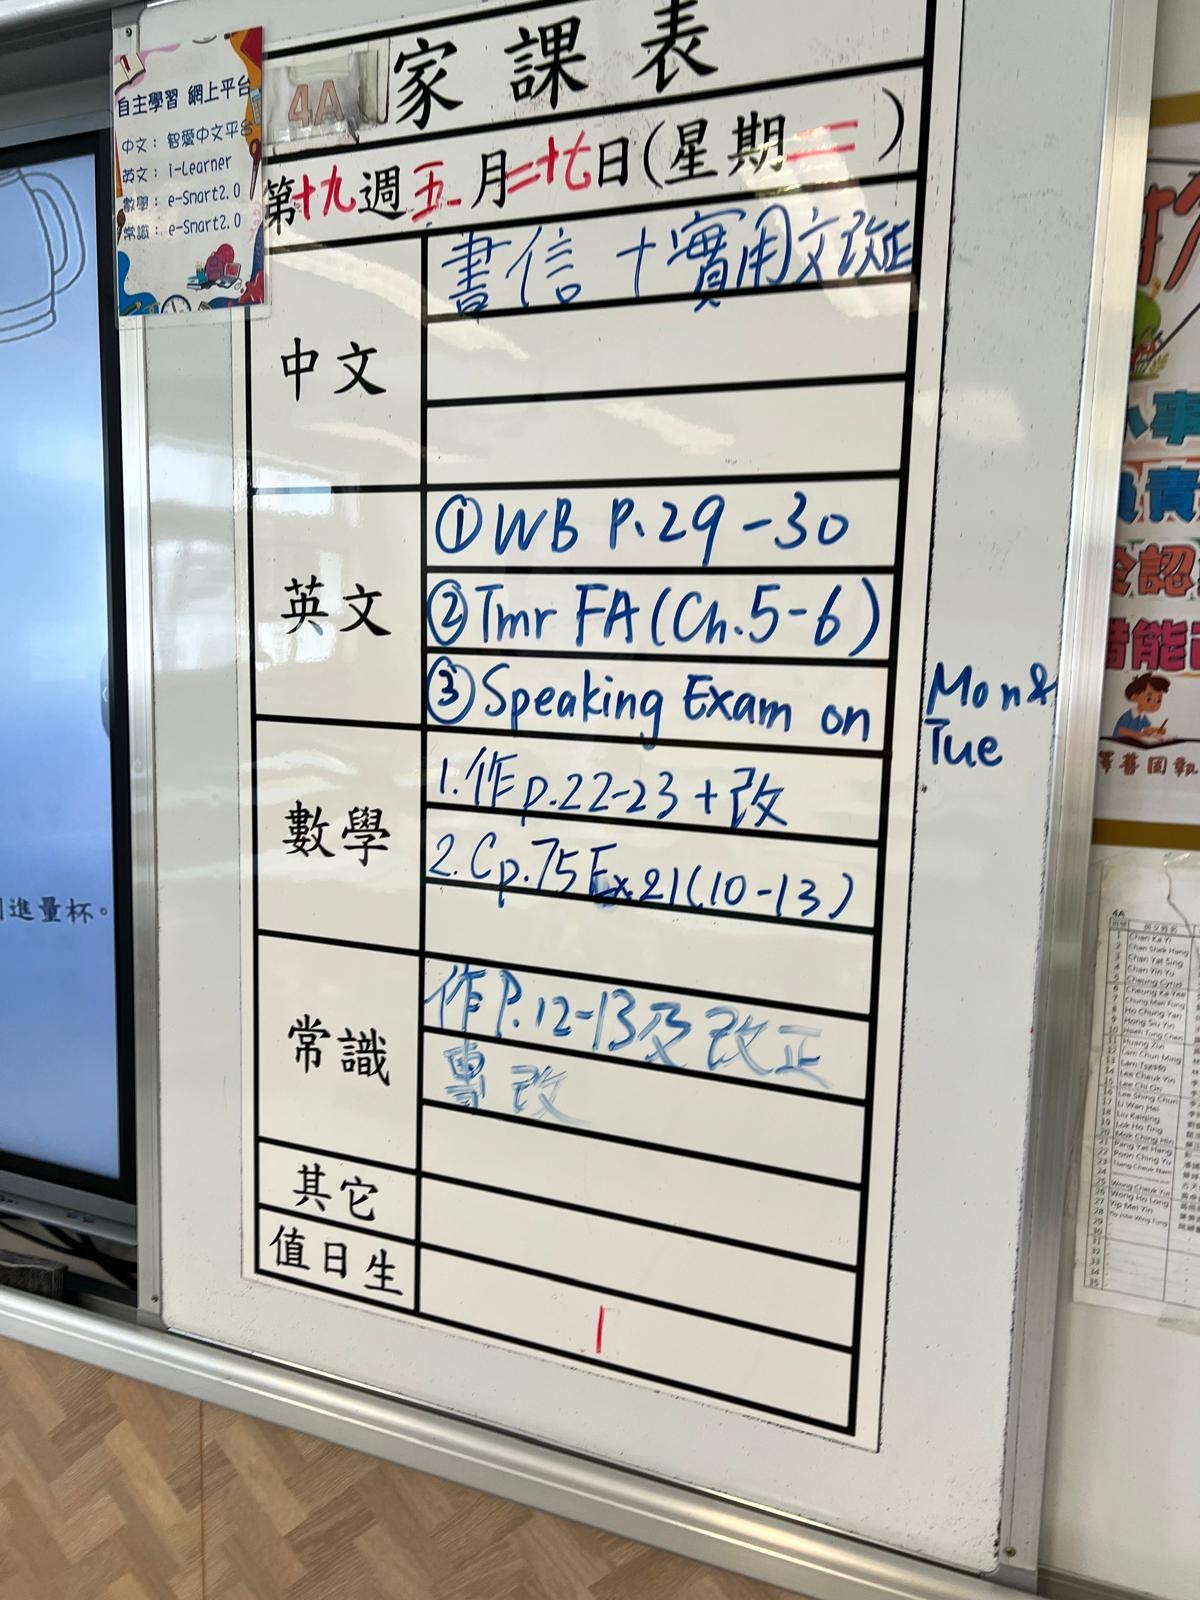 自主學習 網上平台
中文： 智愛中文平台
英文： i-Learner
數學： e-Smart2.0
常識： e-Smart2.0
4A
家課表
第十九週五月二十七日(星期二)
中文
書信 + 實用文改正
英文
①WB P.29-30
②Tmr FA(Ch.5-6)
③Speaking Exam on Mon & Tue
數學
1.作p.22-23+改
2.Cp.75Ex.21(10-13)
常識
作P.12-13及改正
專改
其它
值日生
1
進量杯。
小事
負責
全認
錯能
4A
英文姓名
1 Chan Ka Yi
2 Chan Shek Hang
3 Chan Yat Sing
4 Chan Yin Yu
5 Cheung Cyrus
6 Cheung Ka Yee
7 Chung Man Fung
8 Ho Chung Yan
9 Hong Siu Yin
10 Hsieh Tung Chen
11 Huang Zixi
12 Lam Chun Ming
13 Lam Tsz Ho
14 Lee Cheuk Yin
15 Lee Chi On
16 Lee Shing Chun
17 Li Wan Hei
18 Liu Kaiqing
19 Lok Ho Ting
20 Mok Ching Hin
21 Pang Yat Hang
22 Poon Ching Yu
23 Tsang Cheuk Nam
25 Wong Cheuk Yin
26 Wong Ho Long
27 Yip Mei Yin
28
29
30
31
32
33
34
35